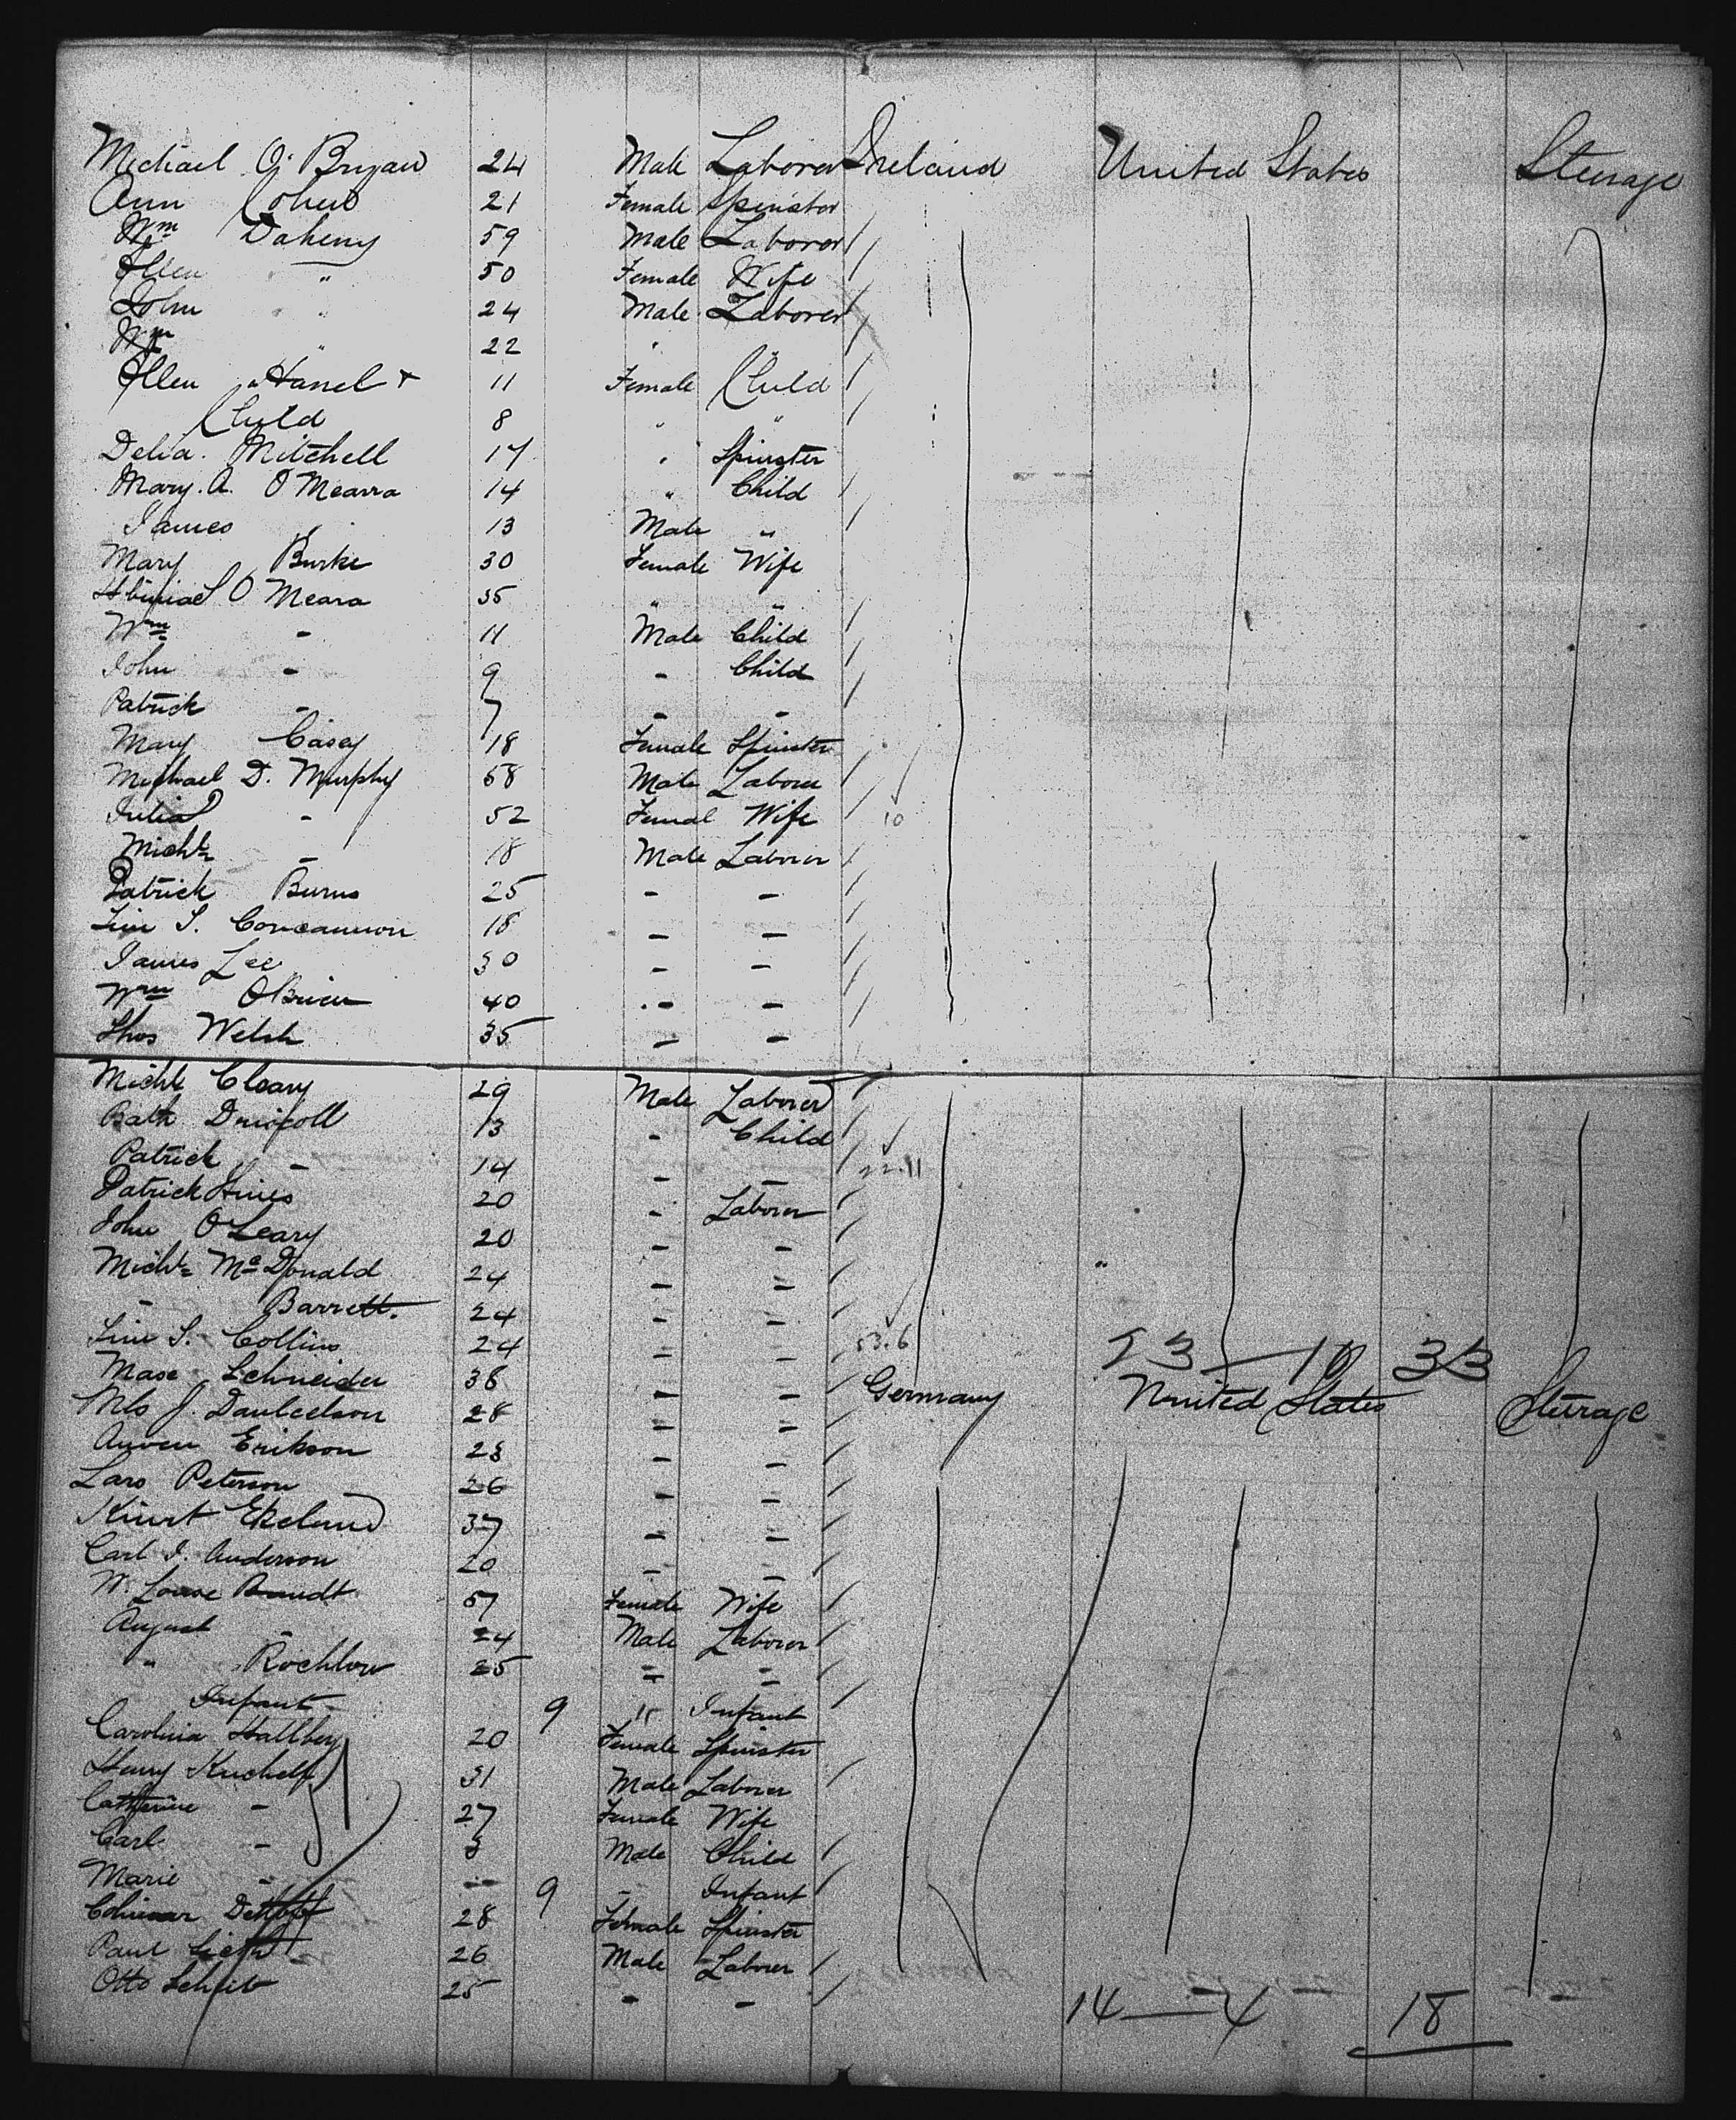 Michael O'Bryan 24 Male Laborer Ireland United States Steerage
Ann 21 Female Spinster
Wm Daheny 59 Male Laborer
Ellen " 50 Female Wife
John " 24 Male Laborer
Wm " 22 " "
Ellen 11 Female Child
Child 8 " "
Delia Mitchell 17 " Spinster
Mary A. O'Mearra 14 " Child
James 13 Male "
Mary Burke 30 Female Wife
O Meara 35 " "
Wm - 11 Male Child
John - 9 - Child
Patrick - 7 - -
Mary Casey 18 Female Spinster
Michael D. Murphy 58 Male Laborer
Julia - 52 Femal Wife 10
Michl - 18 Male Laborer
Patrick Burns 25 - -
Jim S. Concannon 18 - -
James Lee 30 - -
Wm OBrien 40 - -
Thos Welsh 35 - -
Michl Cleary 29 Male Laborer
Bath Driscoll 13 - Child
Patrick - 14 - - 22.11
Patrick Hines 20 - Laborer
John O'Leary 20 - -
Michl McDonald 24 - -
- Barrett. 24 - -
Jim S. Collins 24 - - 53.6
23 - 10 33
Schneider 38 - - Germany United States Steerage
J. 28 - -
Erikson 28 - -
Lars Peterson 26 - -
37 - -
Carl J. Anderson 20 - -
W. Louise Brandt 57 Female Wife
August - 24 Male Laborer
" Rochlow 25 - -
Infant 9 " Infant
Carolina Hallberg 20 Female Spinster
Henry 31 Male Laborer
Catherine - 27 Female Wife
Carl - 3 Male Child
Marie - - 9 - Infant
28 Female Spinster
Paul 26 Male Laborer
Otto 25 - -
14 - 4 18